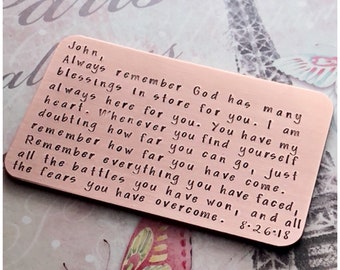 Paris
John,
Always remember God has many
blessings in store for you. I am
always here for you. You have my
heart. Whenever you find yourself
doubting how far you can go, just
remember how far you have come.
Remember everything you have faced,
all the battles you have won, and all
the fears you have overcome. 8-26-18